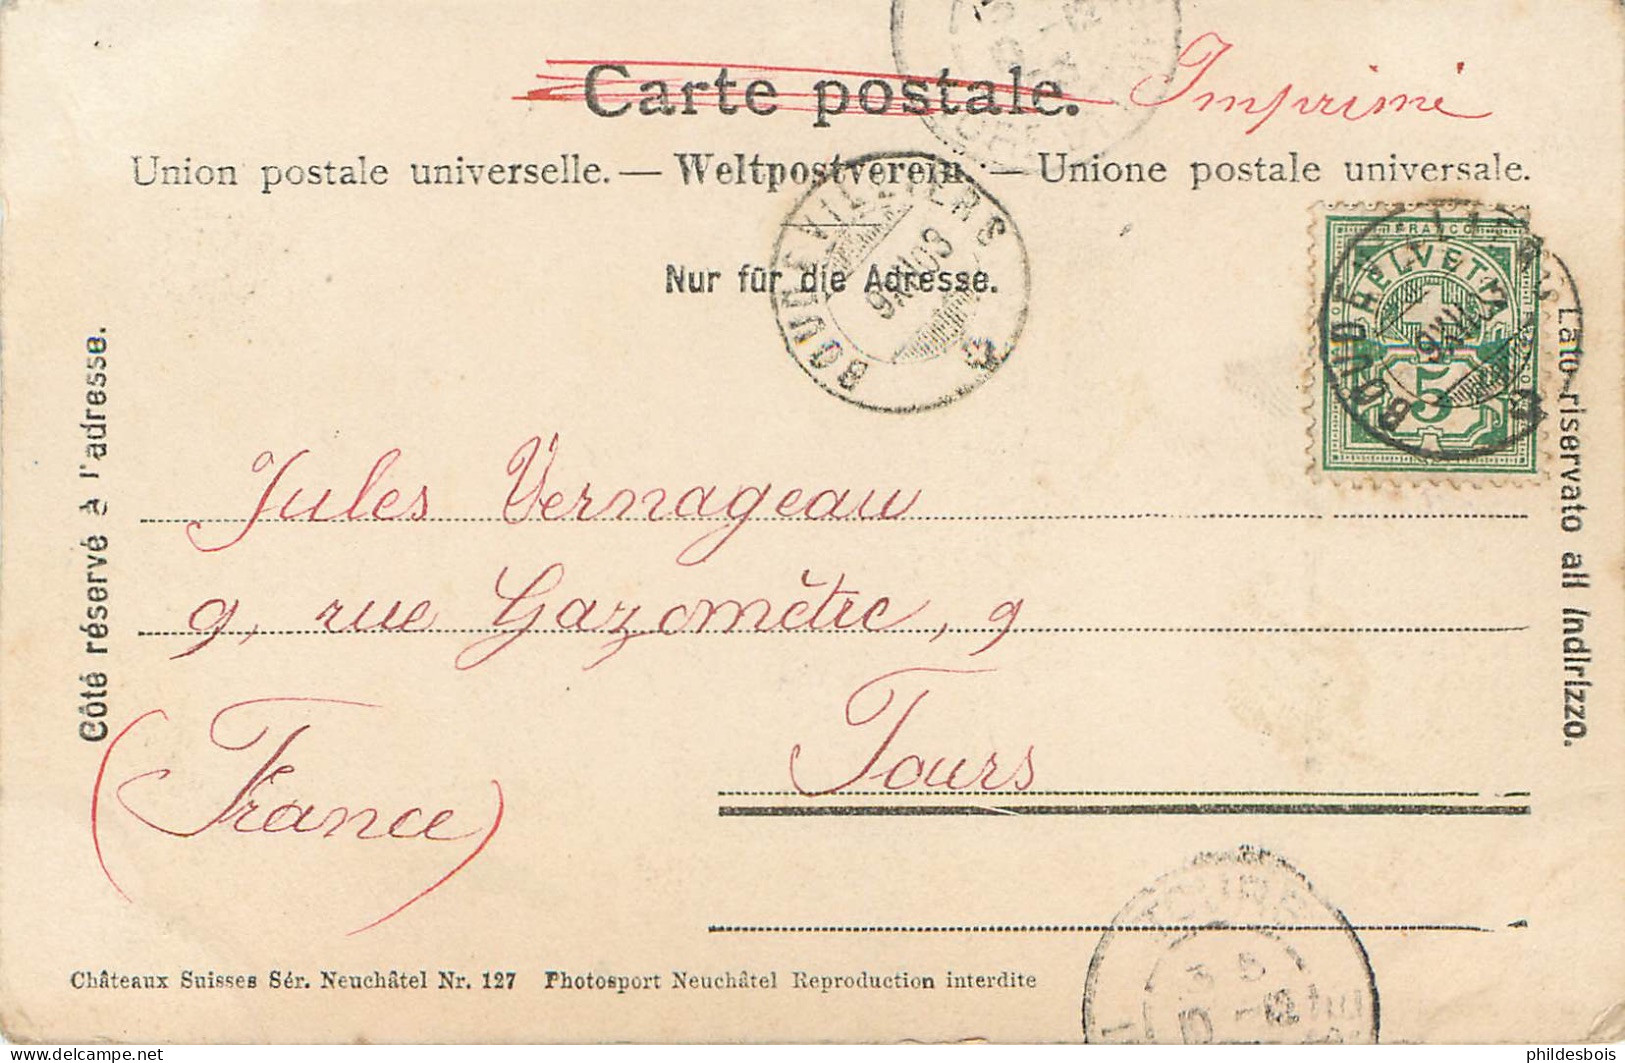 Carte postale. Imprimé
Union postale universelle. — Weltpostverein. — Unione postale universale.
Nur für die Adresse.
Côté réservé à l'adresse.
Lato riservato all Indirizzo.
BOUDEVILLIERS
9.XII.03
FRANCO
HELVETIA
5
BOUDEVILLIERS
9.XII.03
Jules Vernageau
9, rue Gazomètre, 9
Tours
(France)
TOURS
Châteaux Suisses Sér. Neuchâtel Nr. 127 Photosport Neuchâtel Reproduction interdite
phildesbois
delcampe.net